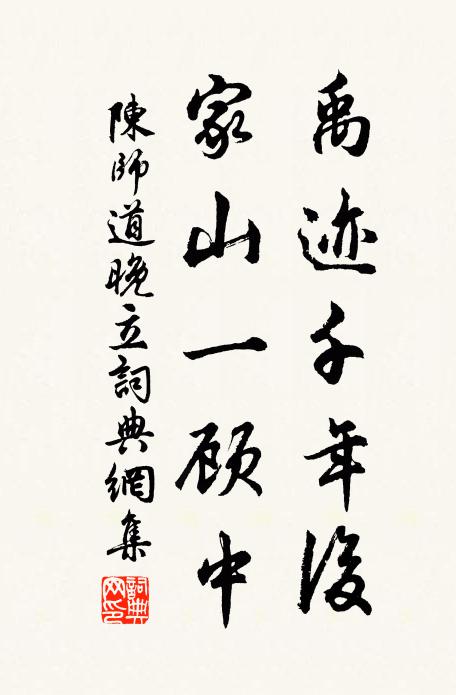 禹迹千年後
家山一顾中
陳師道晚立詞典網集
詞典网印